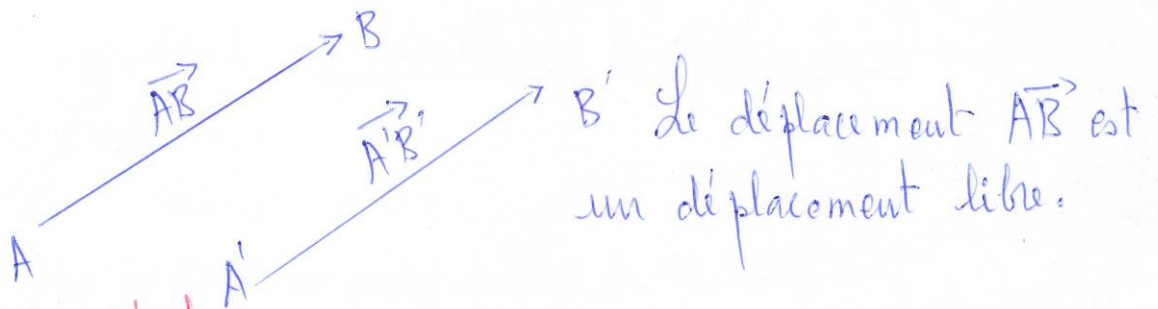 B
AB
A'B'
B' Le déplacement AB est
un déplacement libre.
A
A'